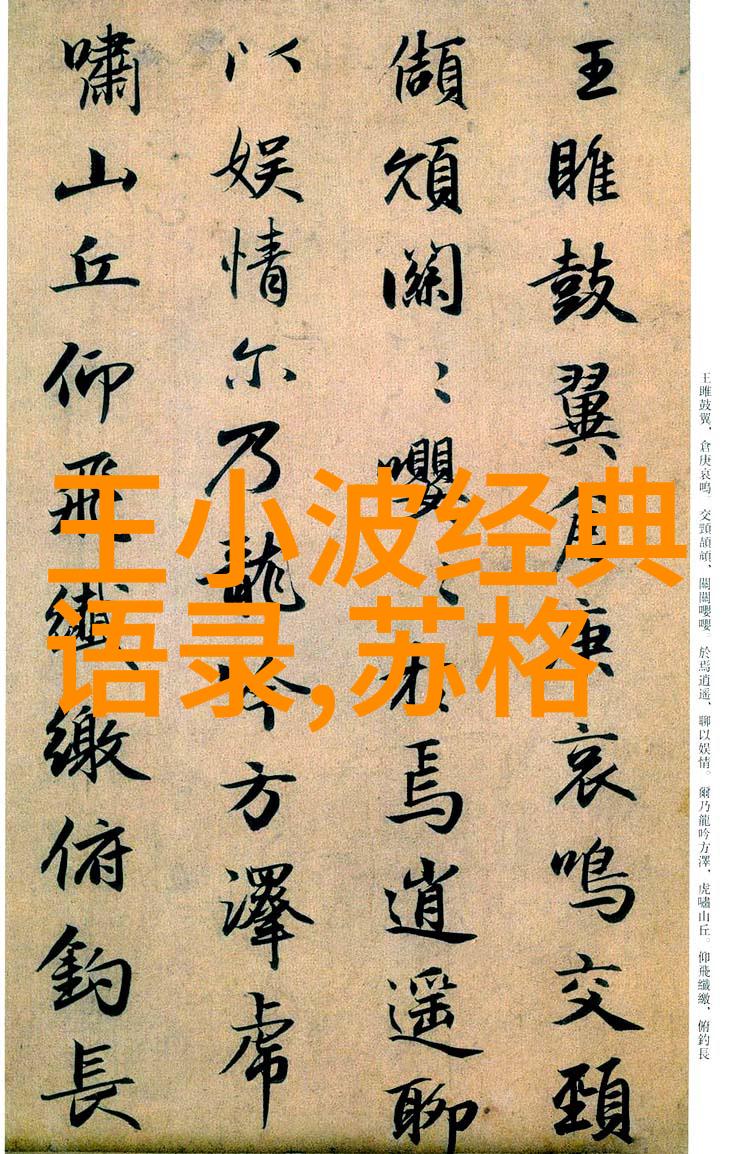 王雎鼓翼倉庚哀鳴交頸
頡頏關〻嚶〻於焉逍遥聊
以娱情尔乃龍吟方澤虎
嘯山丘仰飛纖繳俯釣長
王雎鼓翼、倉庚哀鳴。交頸頡頏、關關嚶嚶。於焉逍遥、聊以娱情。爾乃龍吟方澤、虎嘯山丘。仰飛纖繳、俯釣長
王小波经典
语录,苏格